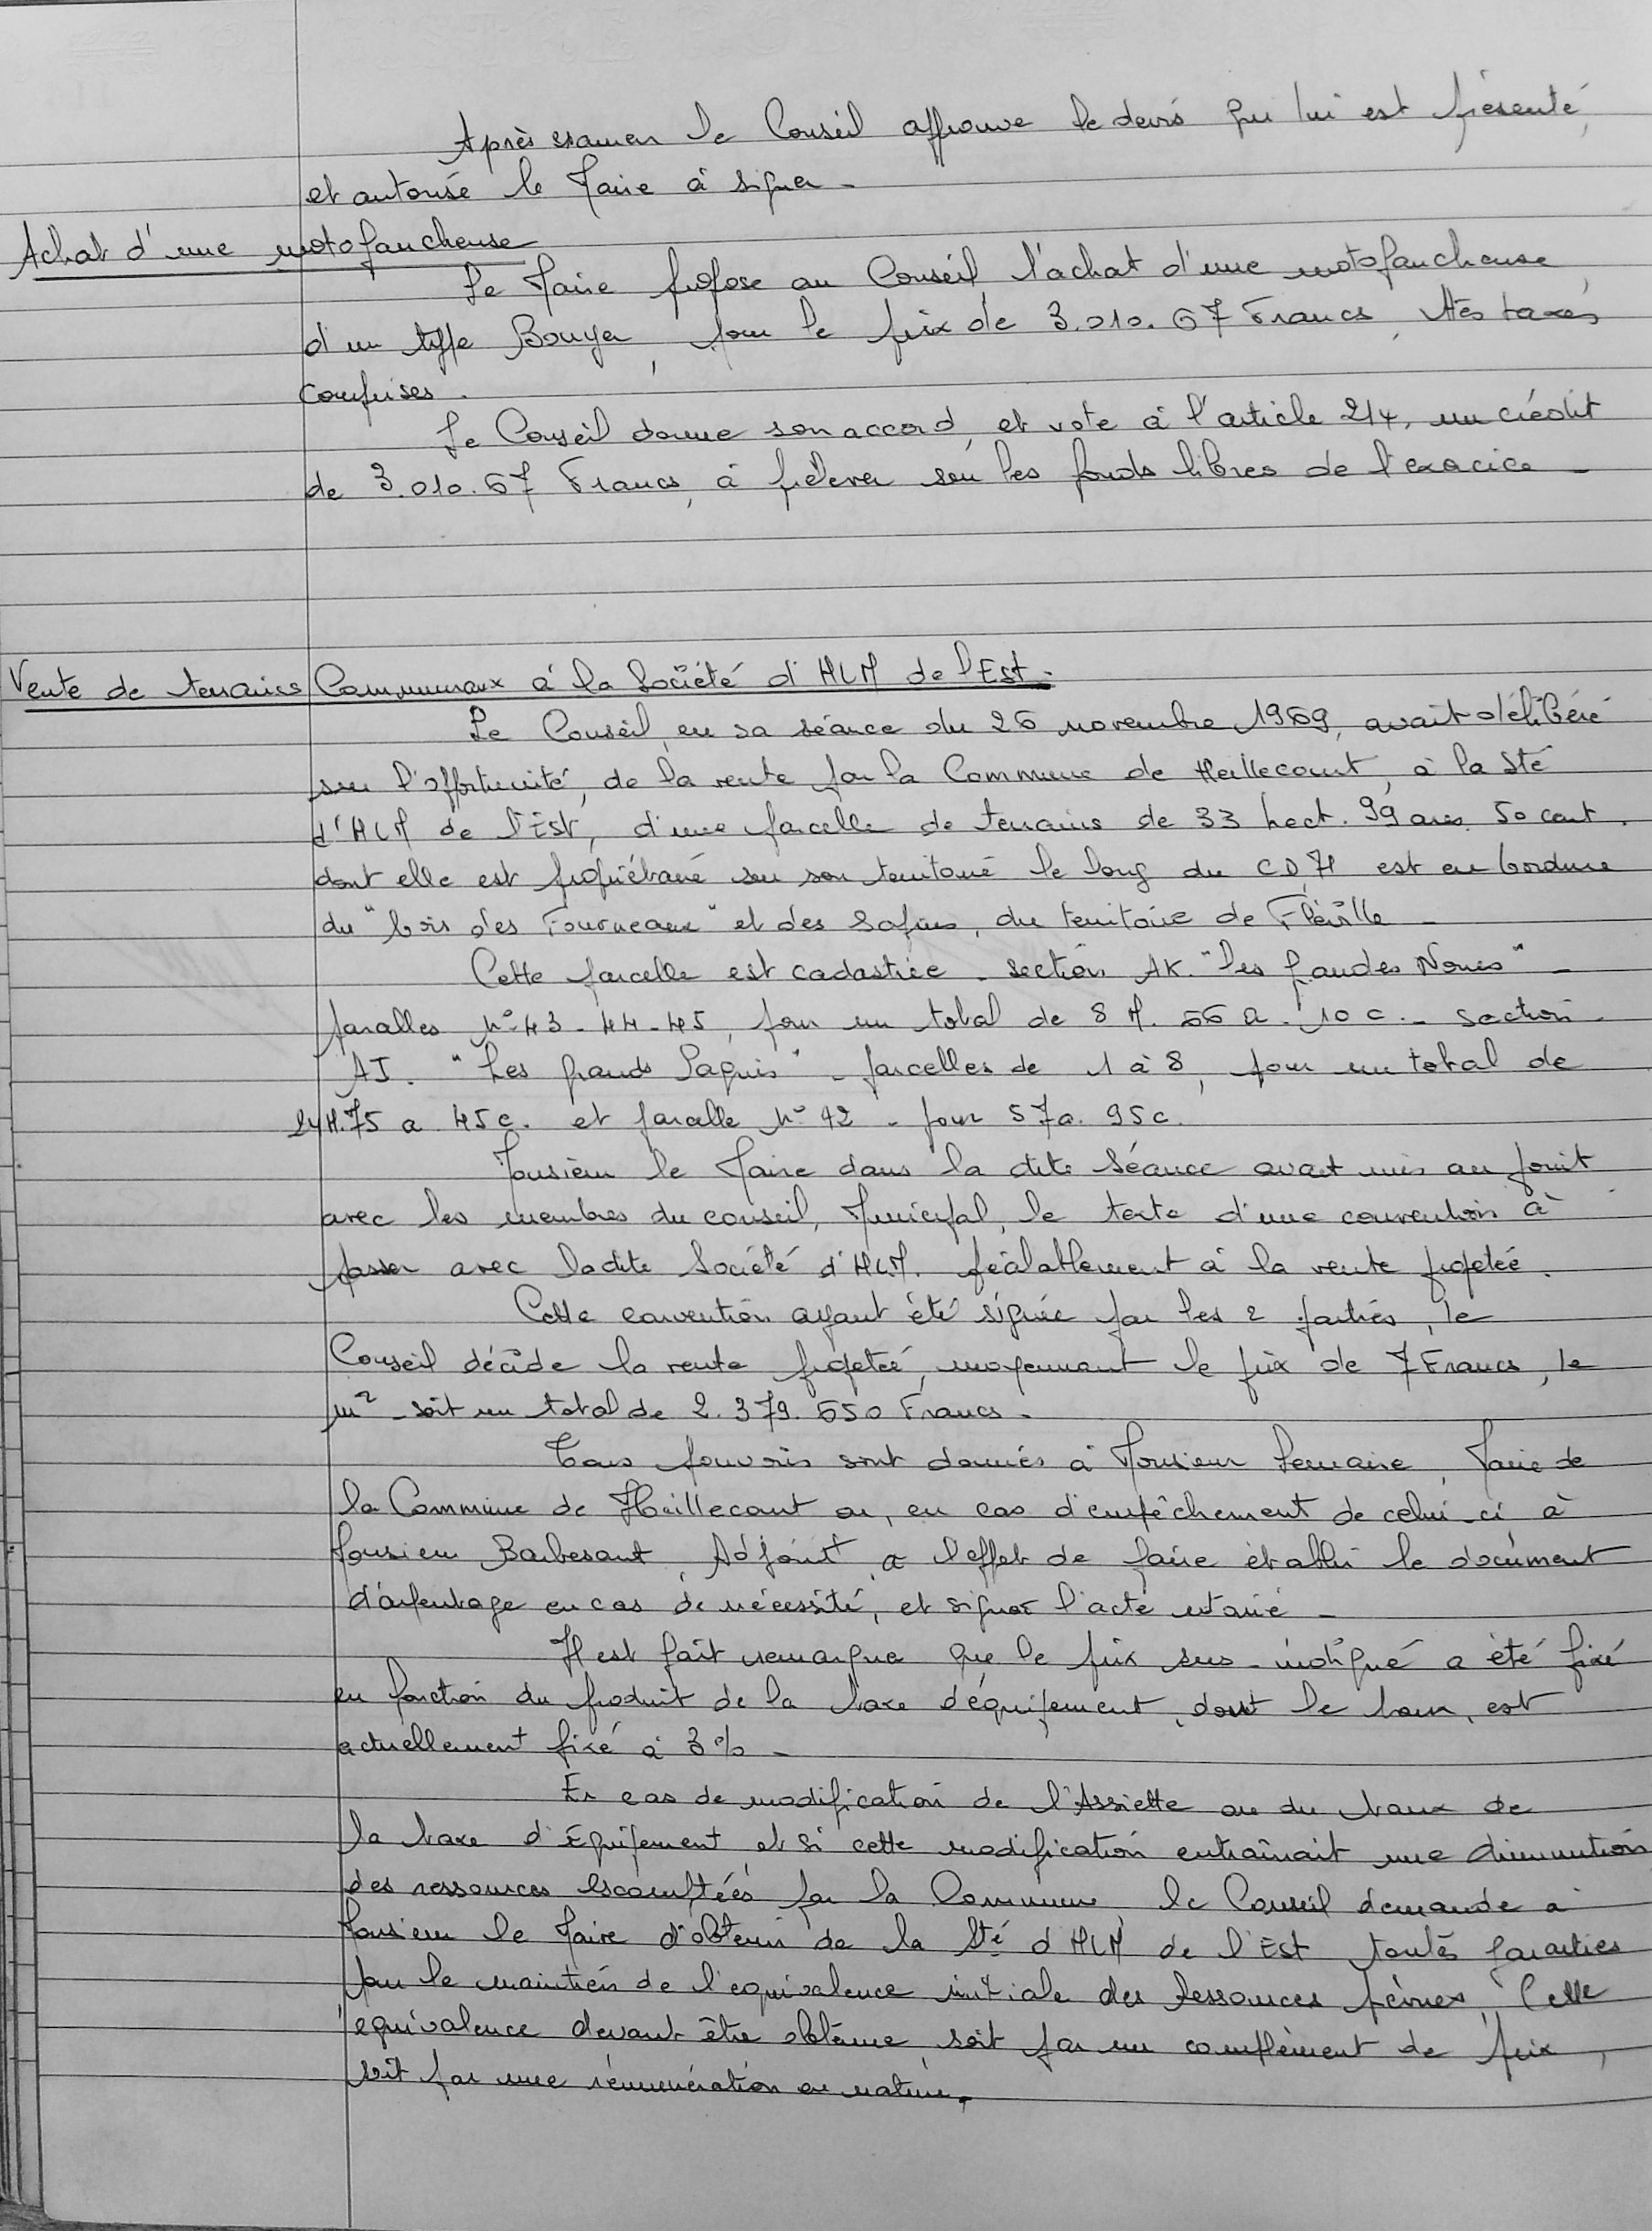 Après examen le Conseil approuve le devis qui lui est présenté,
et autorise le Maire à signer -
Achat d'une motofaucheuse
Le Maire propose au Conseil, l'achat d'une motofaucheuse,
d'un type Bouyer, pour le prix de 3.010.67 Francs, ttes taxes
comprises.
Le Conseil donne son accord, et vote à l'article 214, un crédit
de 3.010.67 Francs, à prélever sur les fonds libres de l'exercice -
Vente de terrains Communaux à la Société d'HLM de l'Est.
Le Conseil, en sa séance du 26 novembre 1969, avait délibéré
sur l'opportunité, de la vente par la Commune de Heillecourt, à la Sté
d'HLM de l'Est, d'une parcelle de terrains de 33 hect. 99 ares 50 cent.
dont elle est propriétaire sur son territoire le long du CD 71 est en bordure
du "bois des Fourneaux" et des Sapins, du territoire de Fléville -
Cette parcelle est cadastrée - section AK. "Les grandes Noues" -
parcelles N° 43 - 44 - 45, pour un total de 8 H. 66 a. 10 c. - section -
AI. "Les grands Paquis" - parcelles de 1 à 8, pour un total de
24H.75 a 45 c. et parcelle N° 42 - pour 57a. 95 c.
Monsieur le Maire dans la dite séance avait mis au point
avec les membres du conseil, Municipal, le texte d'une convention à
passer avec ladite Société d'HLM. préalablement à la vente projetée.
Cette convention ayant été signée par les 2 parties, le
Conseil décide la vente projetée, moyennant le prix de 7 Francs, le
m² - soit un total de 2.379.650 Francs -
Tous pouvoirs sont donnés à Monsieur Lemaire, Maire de
la Commune de Heillecourt ou, en cas d'empêchement de celui-ci à
Monsieur Barbesant, Adjoint, à l'effet de faire établir le document
d'arpentage en cas de nécessité, et signer l'acte notarié -
Il est fait remarquer que le prix sus-indiqué a été fixé
en fonction du produit de la taxe d'équipement, dont le taux, est
actuellement fixé à 3% -
En cas de modification de l'Assiette ou du taux de
la taxe d'Equipement et si cette modification entraînait une diminution
des ressources escomptées par la Commune, le Conseil demande à
Monsieur le Maire d'obtenir de la Sté d'HLM de l'Est toutes garanties
pour le maintien de l'équivalence initiale des Ressources prévues, Cette
équivalence devant être obtenue, soit par un complément de prix,
soit par une rémunération en nature.